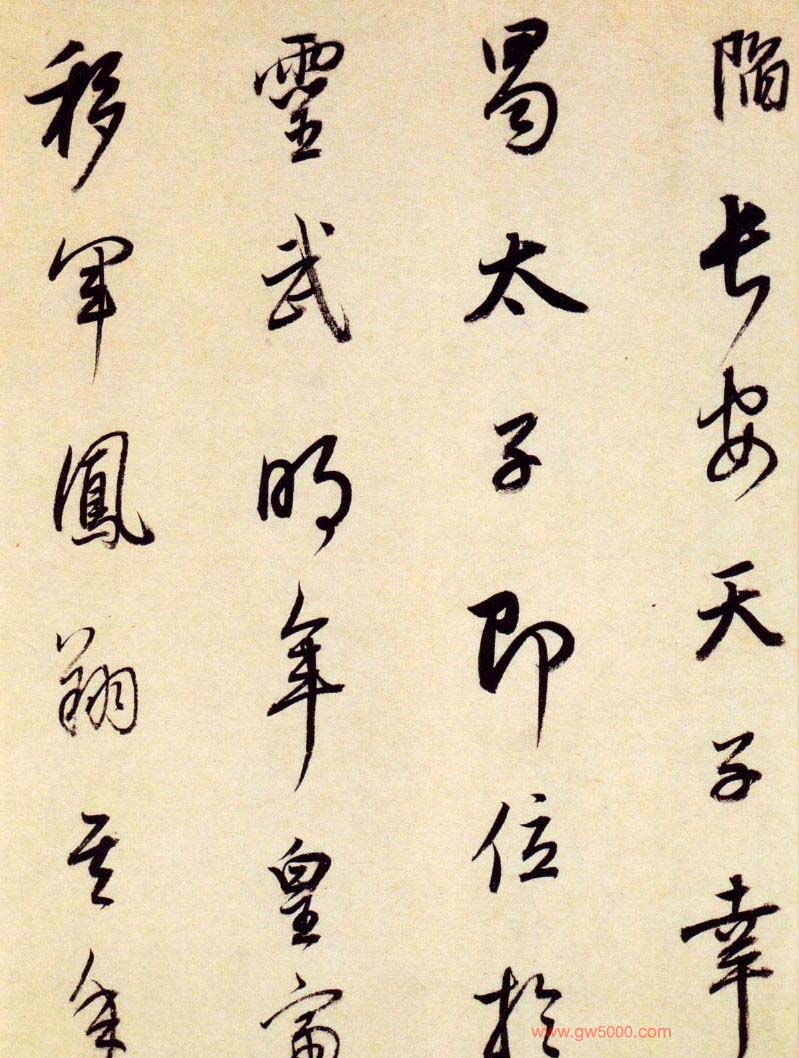 陷长安天子幸
蜀太子即位於
靈武明年皇帝
移軍鳳翔其年
www.gw5000.com